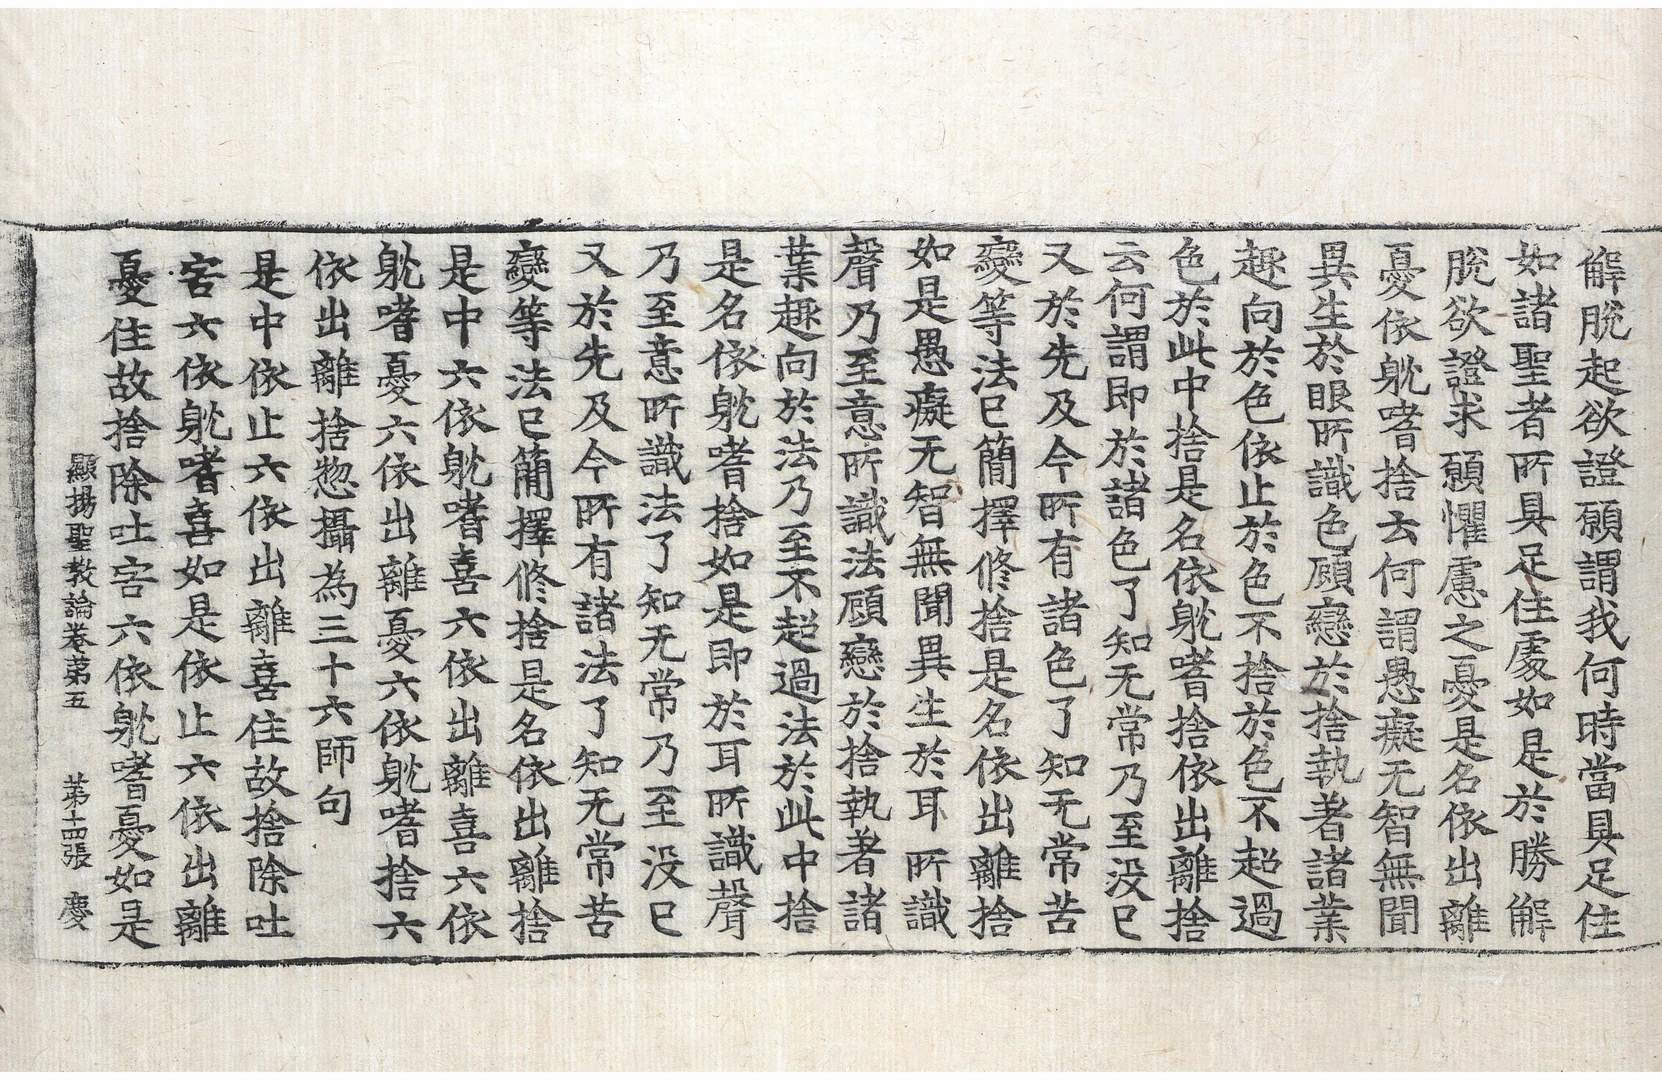 解脫起欲證願謂我何時當具足住
如諸聖者所具足住處如是於勝解
脫欲證求願懼慮之憂是名依出離
憂依躭嗜捨云何謂愚癡无智無聞
異生於眼所識色顧戀於捨執著諸業
趣向於色依止於色不捨於色不超過
色於此中捨是名依躭嗜捨依出離捨
云何謂即於諸色了知无常乃至没已
又於先及今所有諸色了知无常苦
變等法已簡擇修捨是名依出離捨
如是愚癡无智無聞異生於耳所識
聲乃至意所識法顧戀於捨執著諸
業趣向於法乃至不超過法於此中捨
是名依躭嗜捨如是即於耳所識聲
乃至意所識法了知无常乃至没已
又於先及今所有諸法了知无常苦
變等法已簡擇修捨是名依出離捨
是中六依躭嗜喜六依出離喜六依
躭嗜憂六依出離憂六依躭嗜捨六
依出離捨惣攝為三十六師句
是中依止六依出離喜住故捨除吐
害六依躭嗜喜如是依止六依出離
憂住故捨除吐害六依躭嗜憂如是
顯揚聖教論卷第五 第十四張 慶